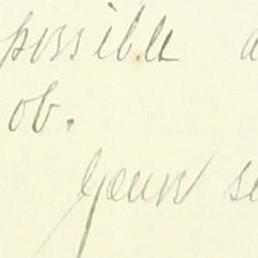 possible a
ob.
Yours s